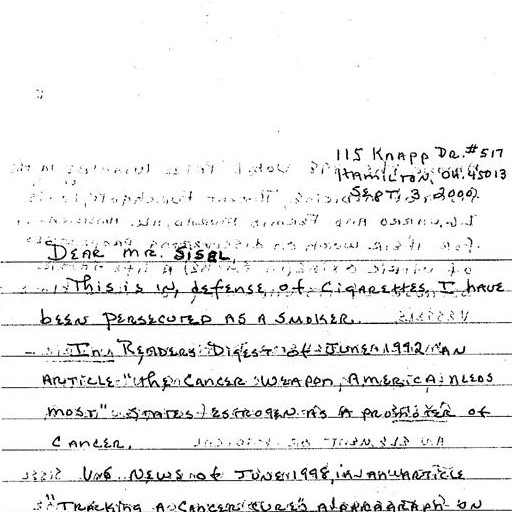 115 Knapp Dr. #517
Hamilton, OH. 45013
Sept. 3, 2000
Dear Mr. Sisel,
This is in defense of cigarettes. I have
been persecuted as a smoker.
In Readers Digest of June 1992 an
article "the Cancer Weapon, America Needs
most" states estrogen as a promoter of
cancer.
News of June 1998, in an article
"Tracking a Cancer Cure" a paragraph on